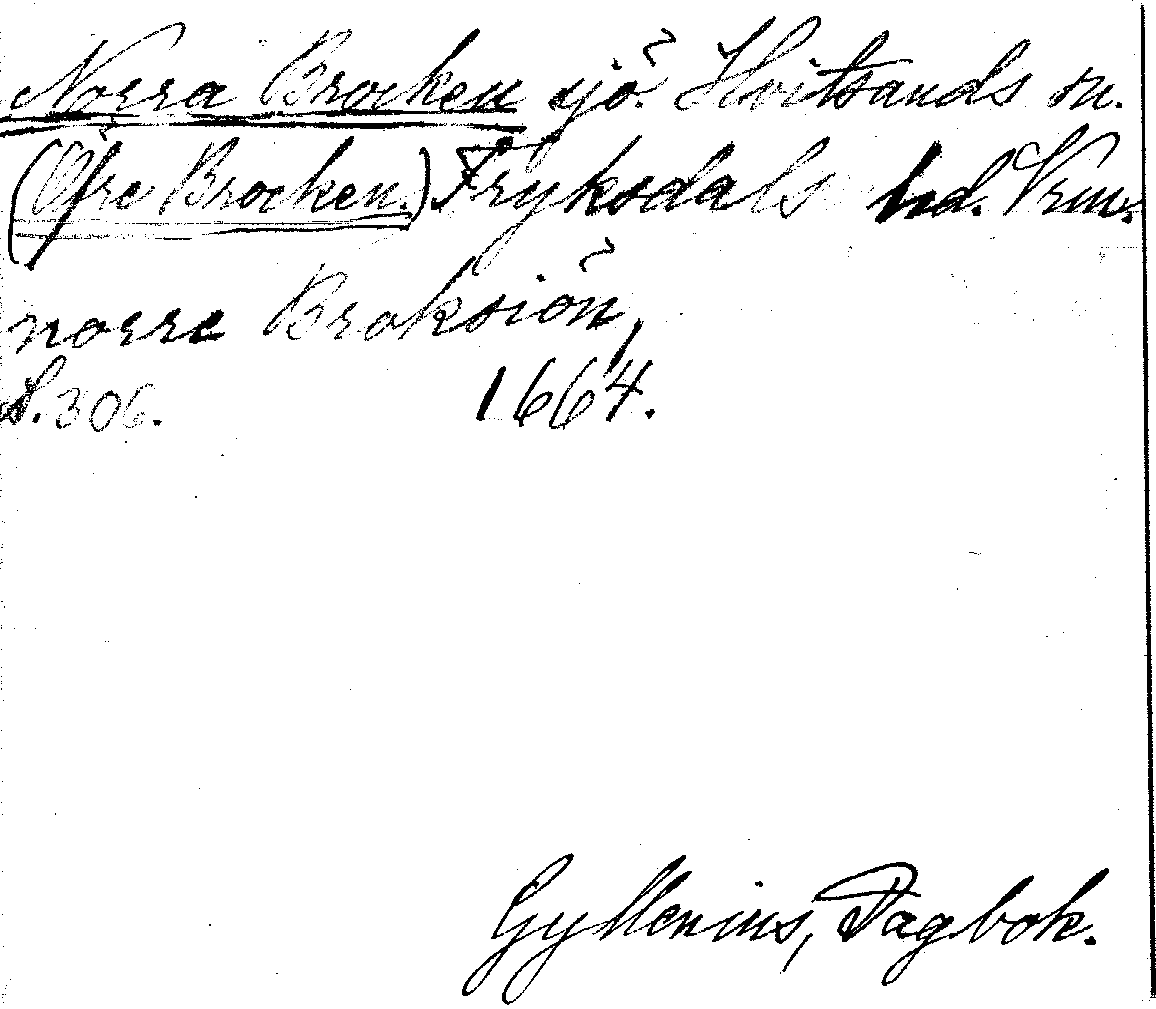 Norra Brocken sjö. Hvitsands sn.
(Öfre Brocken.) Fryksdals hd. Vrm.
norre Broksiön,
S. 306. 1664.
Gyllenius, Dagbok.